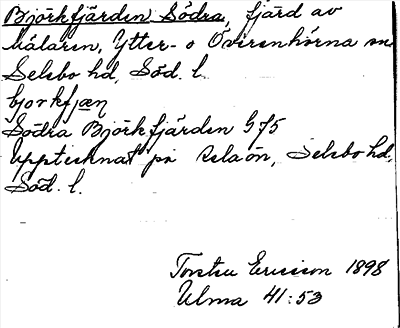 Björkfjärden Södra, fjärd av
Mälaren, Ytter- o Överenhörna sn
Selebo hd, Söd. l.
bjorkfjæn
Södra Björkfjärden G 75
Upptecknat på Selaön, Selebo hd,
Söd. l.
Torsten Ericsson 1898
Ulma 41:53